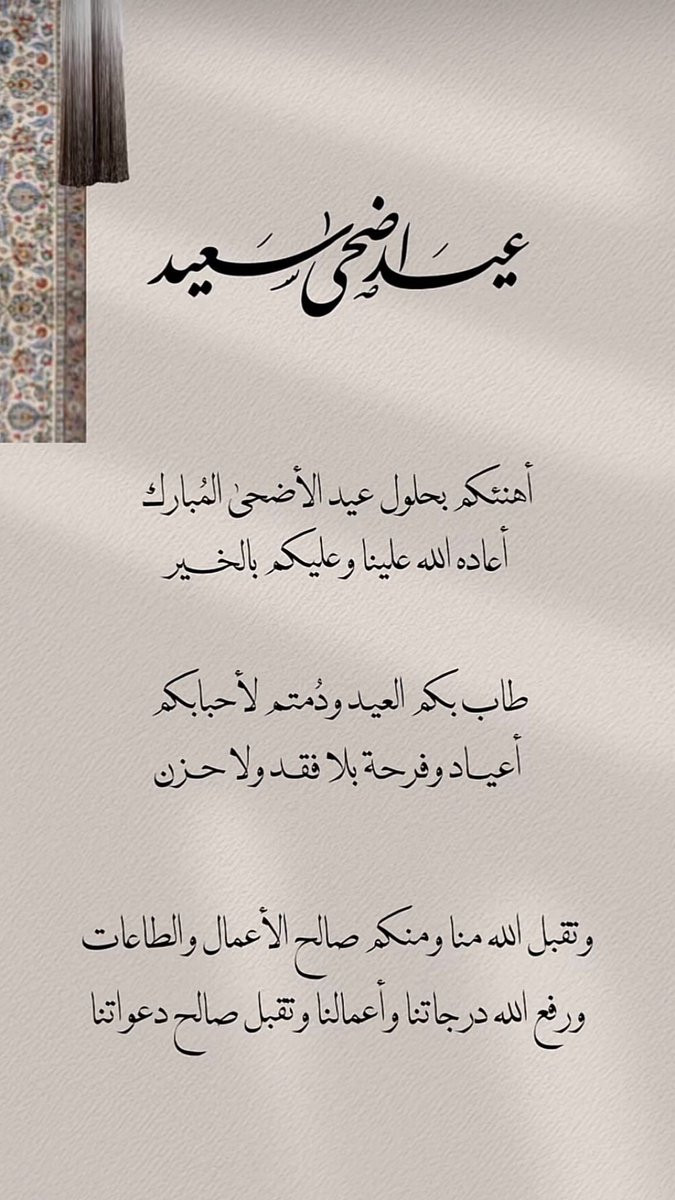 عيد اضحى سعيد
أهنئكم بحلول عيد الأضحىٰ المُبارك
أعاده الله علينا وعليكم بالخـــير
طاب بكم العيد ودُمتم لأحبابكم
أعيــاد وفرحة بلا فقـد ولا حـزن
وتقبل الله منا ومنكم صالح الأعمال والطاعات
ورفع الله درجاتنا وأعمالنا وتقبل صالح دعواتنا